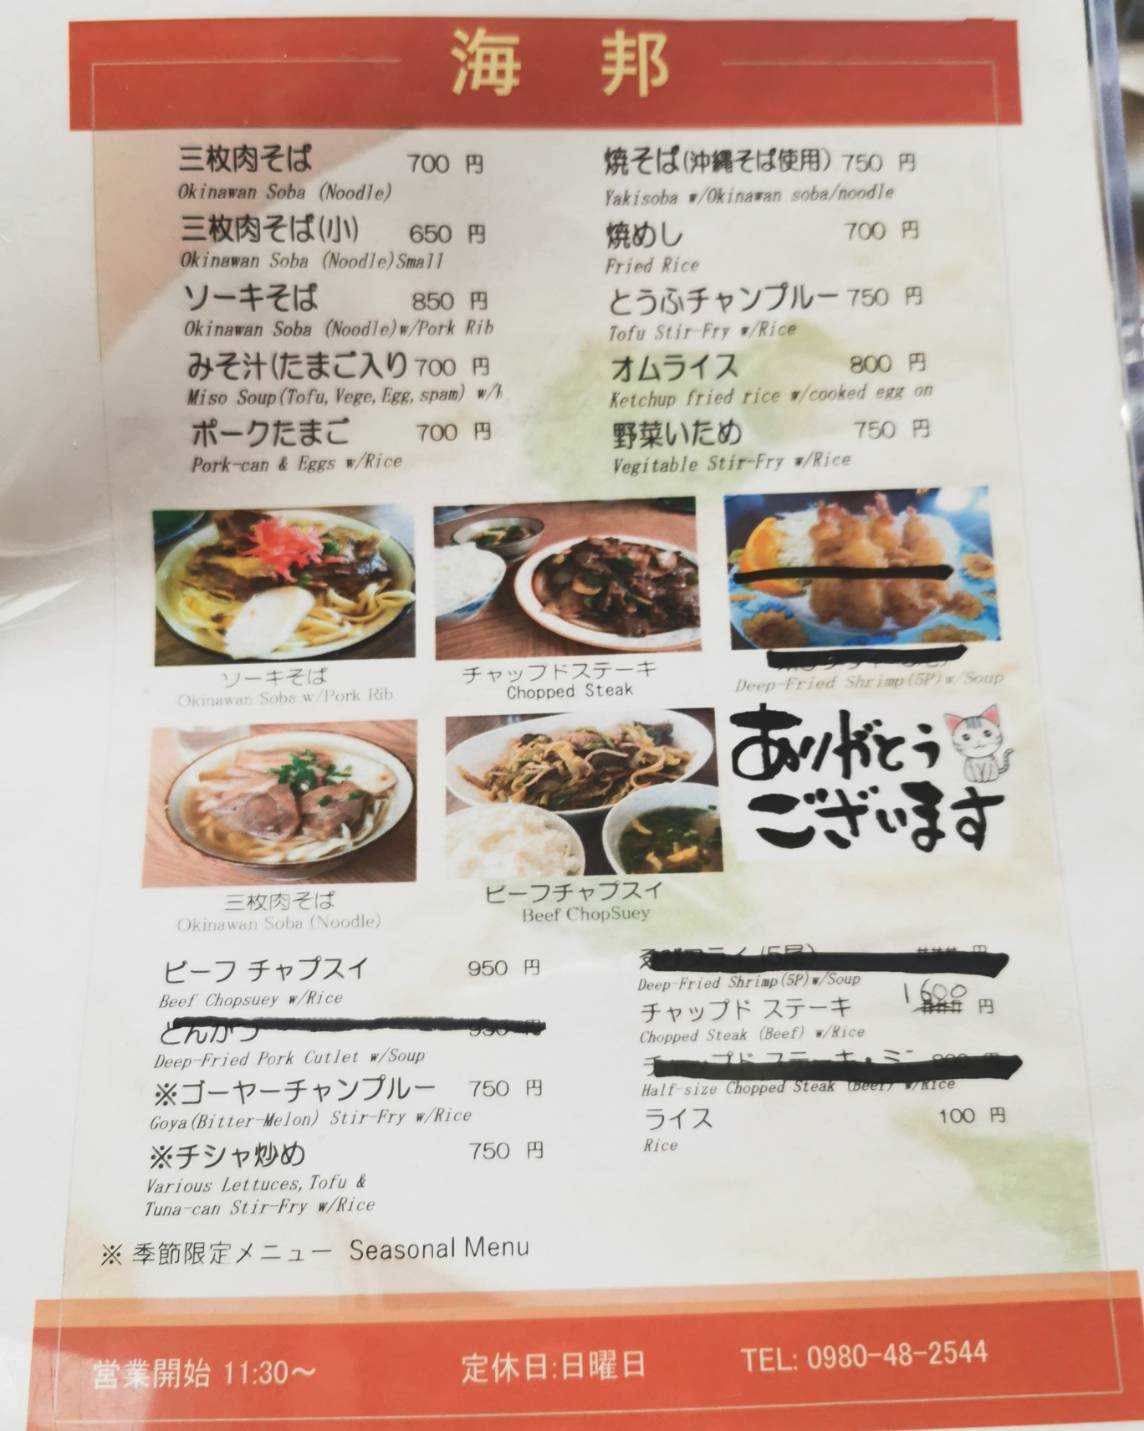 海邦
三枚肉そば 700 円
Okinawan Soba (Noodle)
三枚肉そば(小) 650 円
Okinawan Soba (Noodle)Small
ソーキそば 850 円
Okinawan Soba (Noodle)w/Pork Rib
みそ汁(たまご入り 700 円
Miso Soup(Tofu,Vege,Egg,spam)
ポークたまご 700 円
Pork-can & Eggs w/Rice
焼そば(沖縄そば使用) 750 円
Yakisoba w/Okinawan soba/noodle
焼めし 700 円
Fried Rice
とうふチャンプルー 750 円
Tofu Stir-Fry w/Rice
オムライス 800 円
Ketchup fried rice w/cooked egg on
野菜いため 750 円
Vegitable Stir-Fry w/Rice
ソーキそば
Okinawan Soba w/Pork Rib
チャップドステーキ
Chopped Steak
Deep-Fried Shrimp(5P)w/Soup
三枚肉そば
Okinawan Soba (Noodle)
ビーフチャプスイ
Beef ChopSuey
ありがとう
ございます
ビーフ チャプスイ 950 円
Beef Chopsuey w/Rice
とんかつ
Deep-Fried Pork Cutlet w/Soup
※ゴーヤーチャンプルー 750 円
Goya(Bitter-Melon) Stir-Fry w/Rice
※チシャ炒め 750 円
Various Lettuces,Tofu &
Tuna-can Stir-Fry w/Rice
Deep-Fried Shrimp(5P)w/Soup
チャップド ステーキ 1600 円
Chopped Steak (Beef) w/Rice
Half-size Chopped Steak (Beef) w/Rice
ライス 100 円
Rice
※ 季節限定メニュー Seasonal Menu
営業開始 11:30～ 定休日:日曜日 TEL: 0980-48-2544